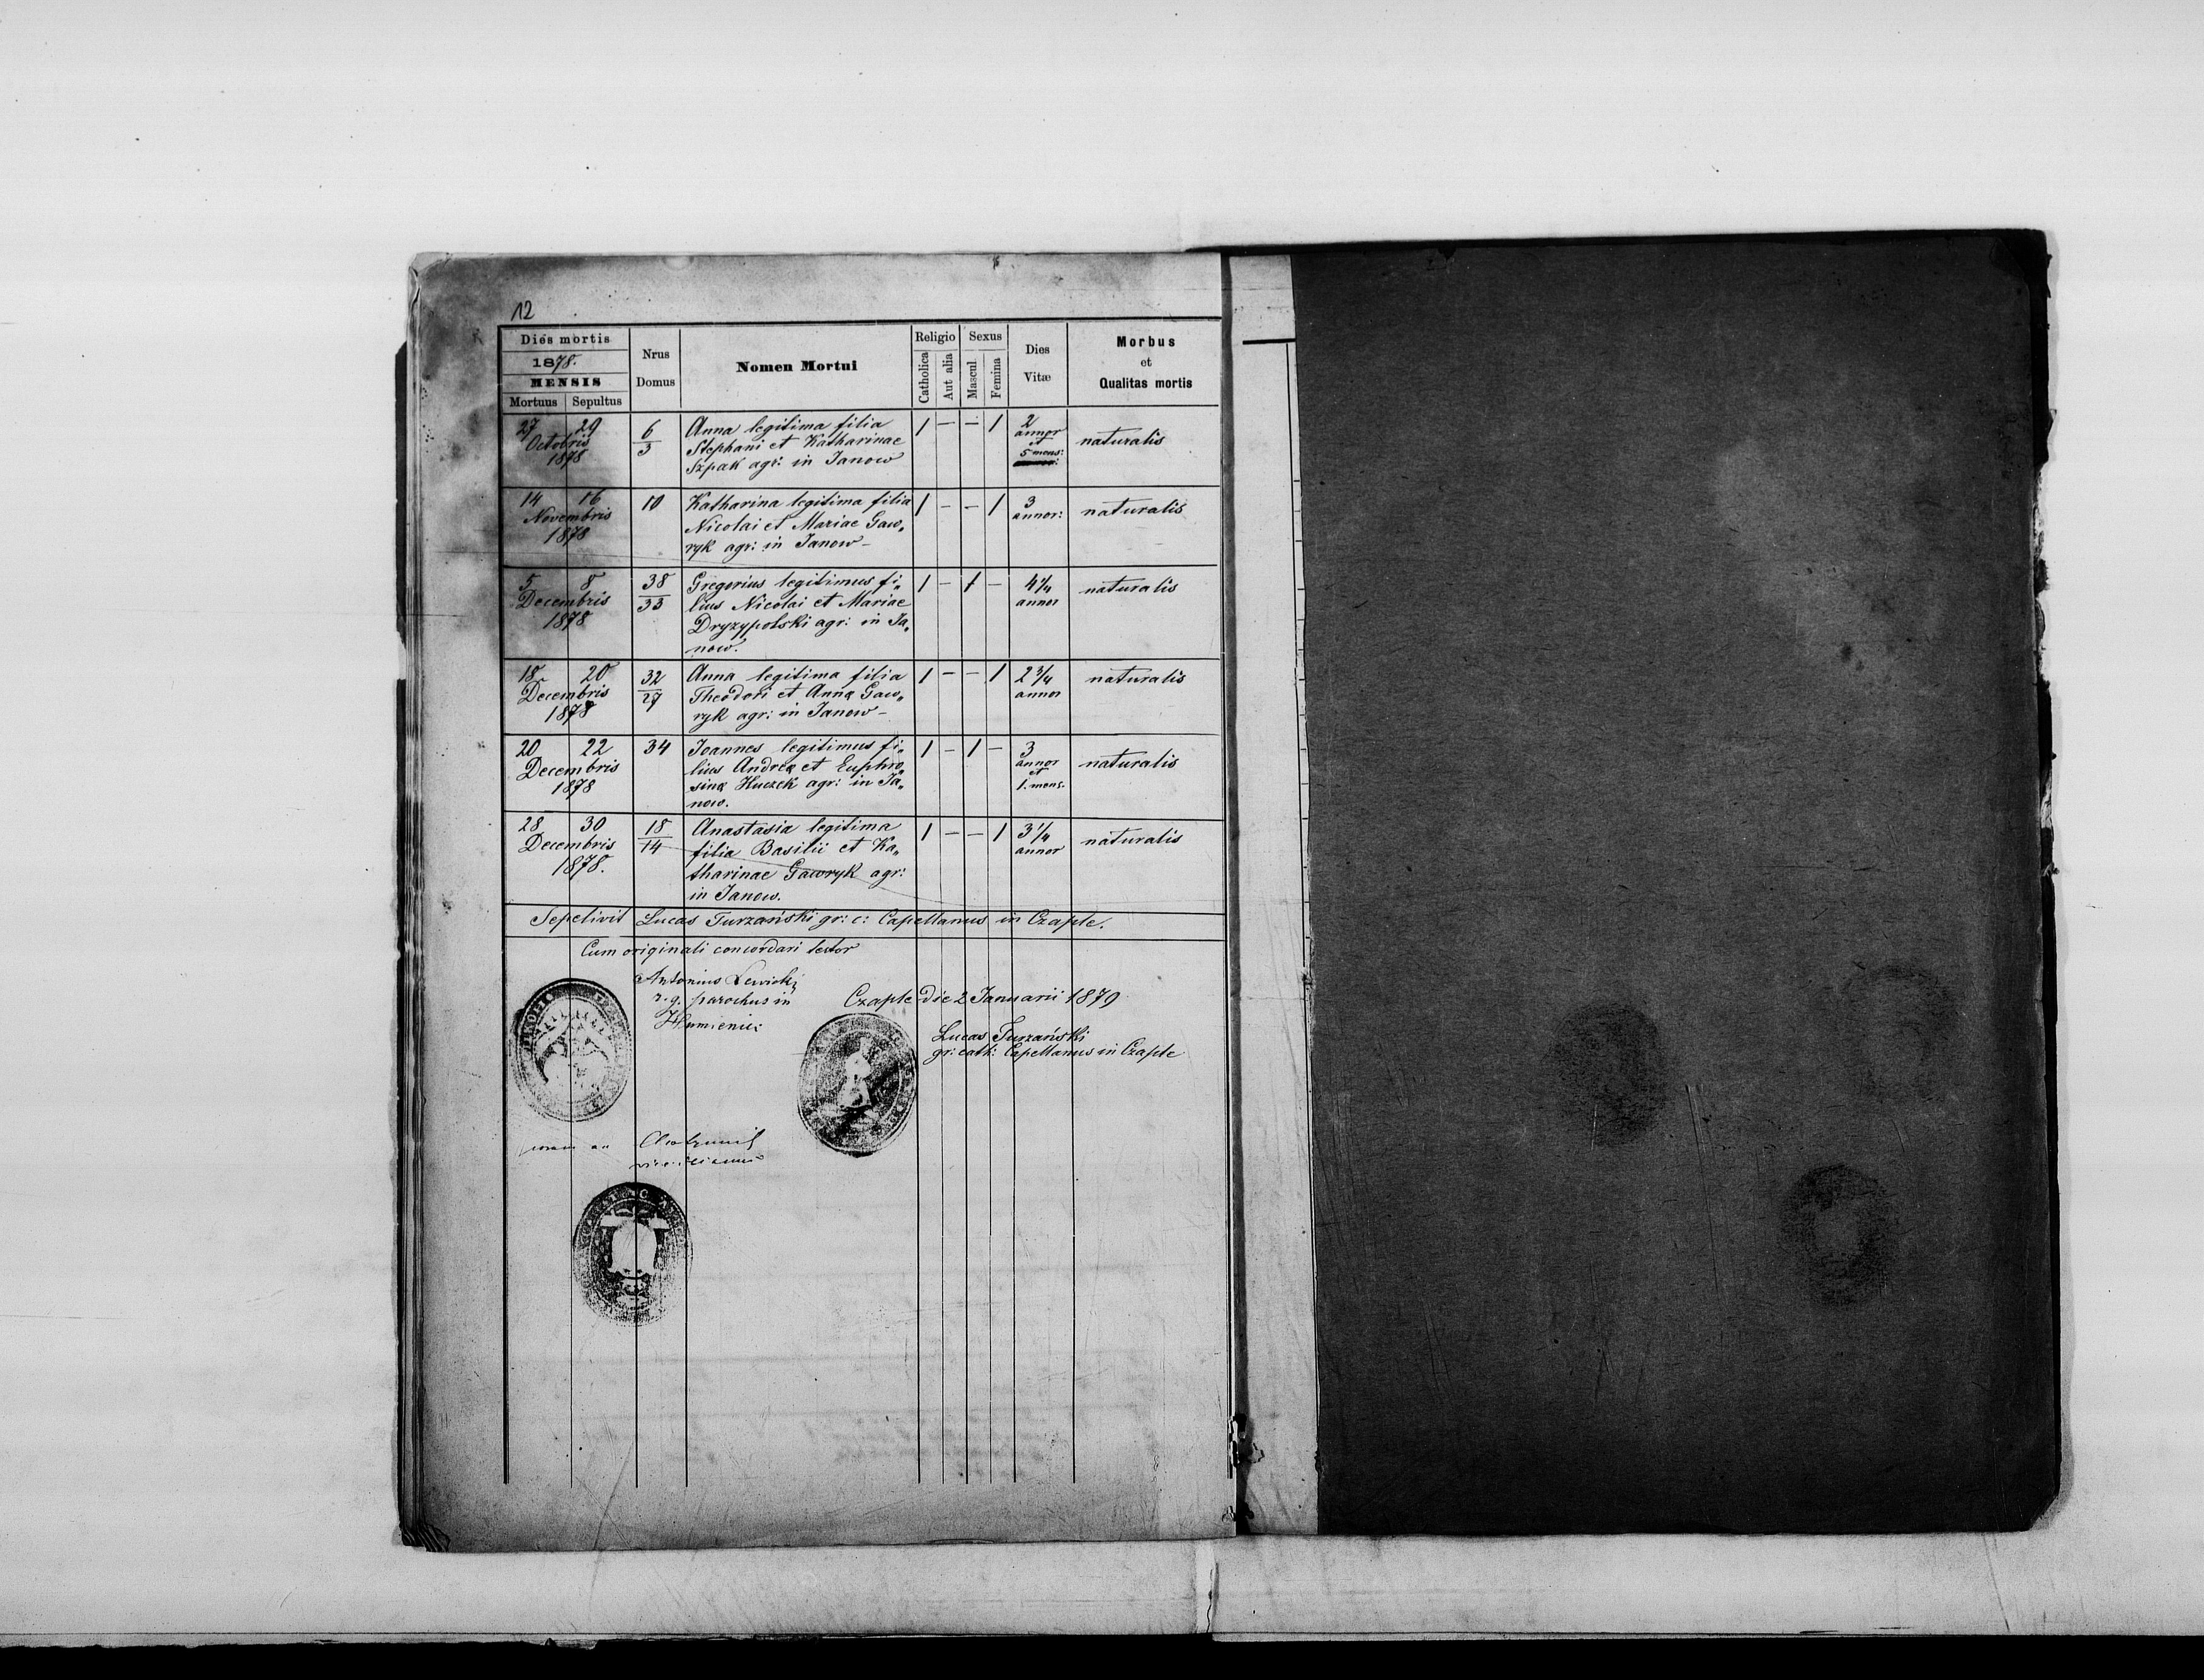 12
Dies mortis
1878.
MENSIS
Mortuus Sepultus
Nrus
Domus
Nomen Mortui
Religio
Catholica
Aut alia
Sexus
Mascul.
Femina
Dies
Vitæ
Morbus
et
Qualitas mortis
27 29
Octobris
1878
6
3
Anna legitima filia
Stephani et Katharinae
Szpak agr: in Janow
1 – – 1
2
annor
et
5 mens:
naturalis
14 16
Novembris
1878
10
Katharina legitima filia
Nicolai et Mariae Gaw„
ryk agr: in Janow –
1 – – 1
3
annor:
naturalis
5 8
Decembris
1878
38
33
Gregorius legitimus fi„
lius Nicolai et Mariae
Dryzypolski agr: in Ja„
now.
1 – 1 –
4 1/4
annor
naturalis
18 20
Decembris
1878
32
27
Anna legitima filia
Theodori et Annę Gaw„
ryk agr: in Janow –
1 – – 1
2 3/4
annor
naturalis
20 22
Decembris
1878
34
Joannes legitimus fi„
lius Andreę et Euphro„
sinę Huczek agr: in Ja„
now.
1 – 1 –
3
annor
et
1. mens.
naturalis
28 30
Decembris
1878.
18
14
Anastasia legitima
filia Basilii et Ka„
tharinae Gawryk agr:
in Janow.
1 – – 1
3 1/4
annor
naturalis
Sepelivit Lucas Turzański gr: c: Capellanus in Czaple.
Cum originali concordari testor
Antonius Lewicki
r. g. parochus in
Humieniec
Czaple die 2 Januarii 1879
Lucas Turzański
gr: cath: Capellanus in Czaple